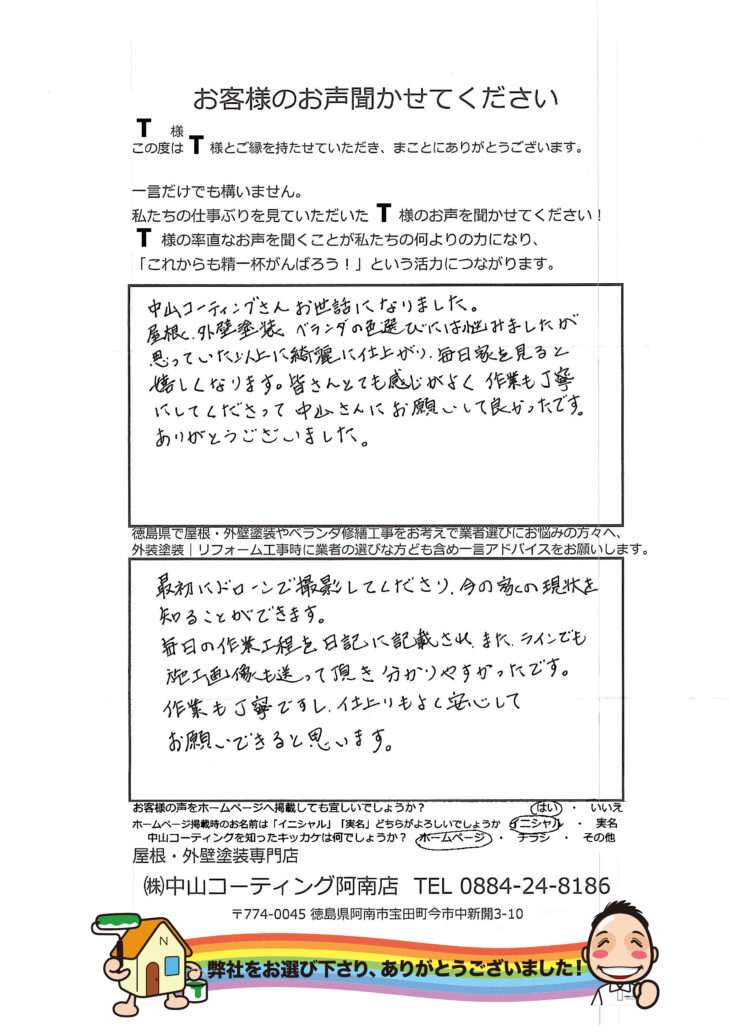 お客様のお声聞かせてください
T 様
この度は T 様とご縁を持たせていただき、まことにありがとうございます。
一言だけでも構いません。
私たちの仕事ぶりを見ていただいた T 様のお声を聞かせてください！
T 様の率直なお声を聞くことが私たちの何よりの力になり、
「これからも精一杯がんばろう！」という活力につながります。
中山コーティングさん お世話になりました。
屋根、外壁塗装、ベランダの色選びには悩みましたが
思っていた以上に綺麗に仕上がり、毎日家を見ると
嬉しくなります。皆さんとても感じがよく 作業も丁寧
にしてくださって 中山さんにお願いして良かったです。
ありがとうございました。
徳島県で屋根・外壁塗装やベランダ修繕工事をお考えで業者選びにお悩みの方々へ、
外装塗装｜リフォーム工事時に業者の選びな方ども含め一言アドバイスをお願いします。
最初にドローンで撮影してくださり、今の家の現状を
知ることができます。
毎日の作業工程を日記に記載され、また、ラインでも
施工画像も送って頂き 分かりやすかったです。
作業も丁寧ですし、仕上りもよく安心して
お願いできると思います。
お客様の声をホームページへ掲載しても宜しいでしょうか？ はい ・ いいえ
ホームページ掲載時のお名前は「イニシャル」「実名」どちらがよろしいでしょうか イニシャル ・ 実名
中山コーティングを知ったキッカケは何でしょうか？ ホームページ ・ チラシ ・ その他
屋根・外壁塗装専門店
㈱中山コーティング阿南店 TEL 0884-24-8186
〒774-0045 徳島県阿南市宝田町今市中新開3-10
N
弊社をお選び下さり、ありがとうございました！